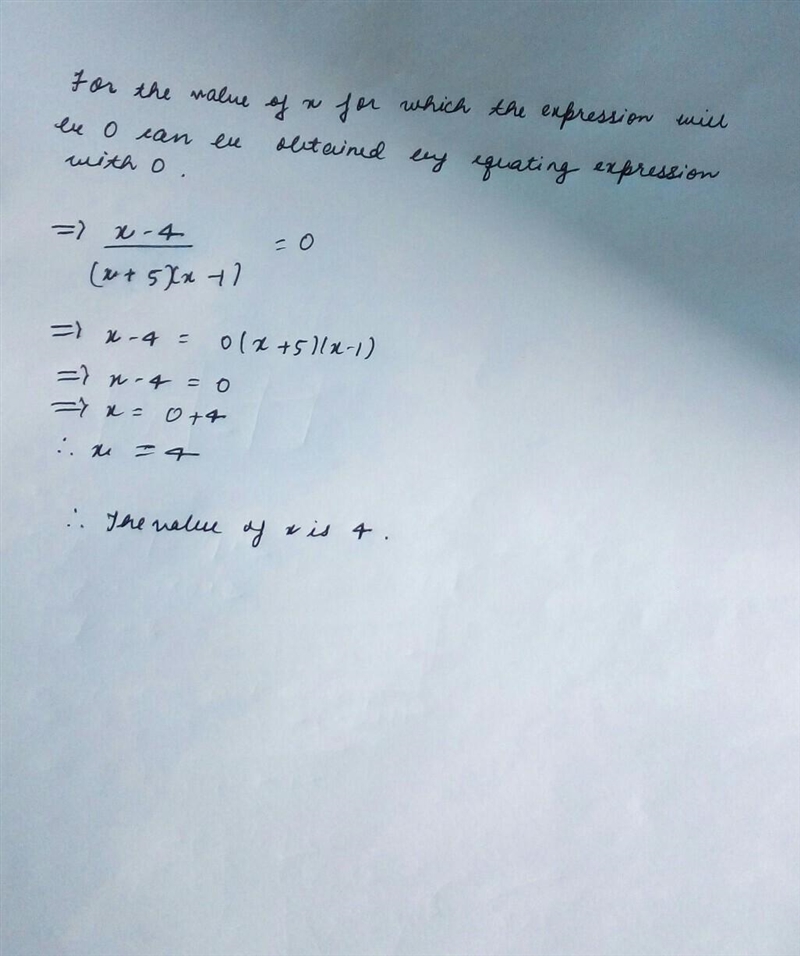 For the value of x for which the expression will
be 0 can be obtained by equating expression
with 0.
=> x - 4 / (x + 5)(x - 1) = 0
=> x - 4 = 0(x + 5)(x - 1)
=> x - 4 = 0
=> x = 0 + 4
∴ x = 4
∴ The value of x is 4.